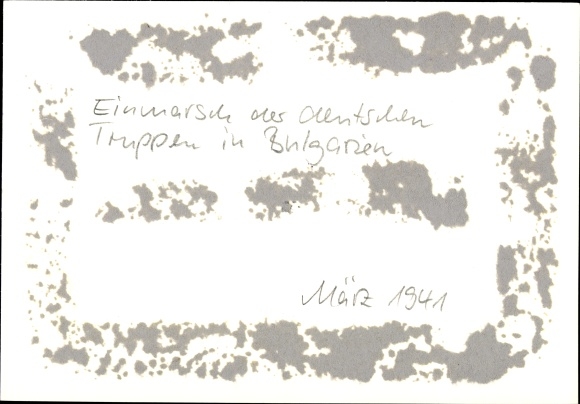 Einmarsch der deutschen
Truppen in Bulgarien
März 1941